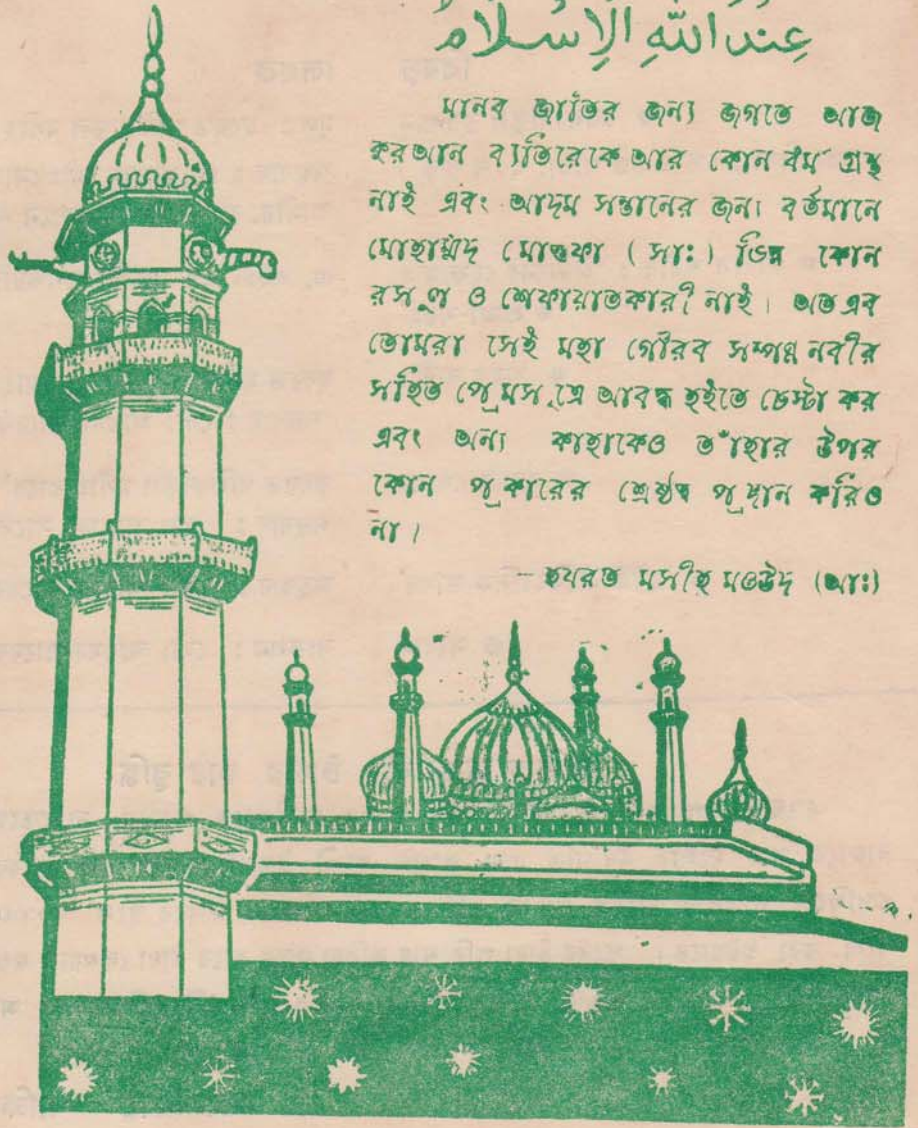 عِندَ اللّٰهِ الْاِسْلَامُ
মানব জাতির জন্য জগতে আজ
কুরআন ব্যতিরেকে আর কোন ধর্ম গ্রন্থ
নাই এবং আদম সন্তানের জন্য বর্তমানে
মোহাম্মদ মোস্তফা ( সাঃ ) ভিন্ন কোন
রসূল ও শেফায়াতকারী নাই । অতএব
তোমরা সেই মহা গৌরব সম্পন্ন নবীর
সহিত প্রেমসূত্রে আবদ্ধ হইতে চেস্টা কর
এবং অন্য কাহাকেও তাঁহার উপর
কোন প্রকারের শ্রেষ্ঠত্ব প্রদান করিও
না ।
— হযরত মসীহ মওউদ (আঃ)